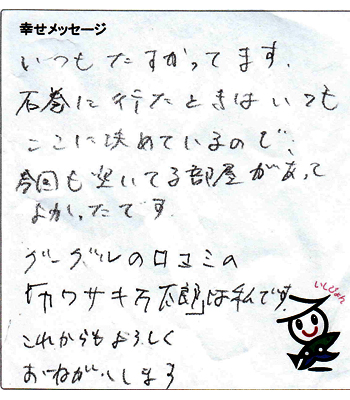 幸せメッセージ
いつもたすかってます.
石巻に行たときはいつも
ここに決めているので、
今回も空いてる部屋があって
よかったです.
グーグルの口コミの
「カワサキ万太郎」は私です.
これからもよろしく
おねがいしまう
いしぴょん